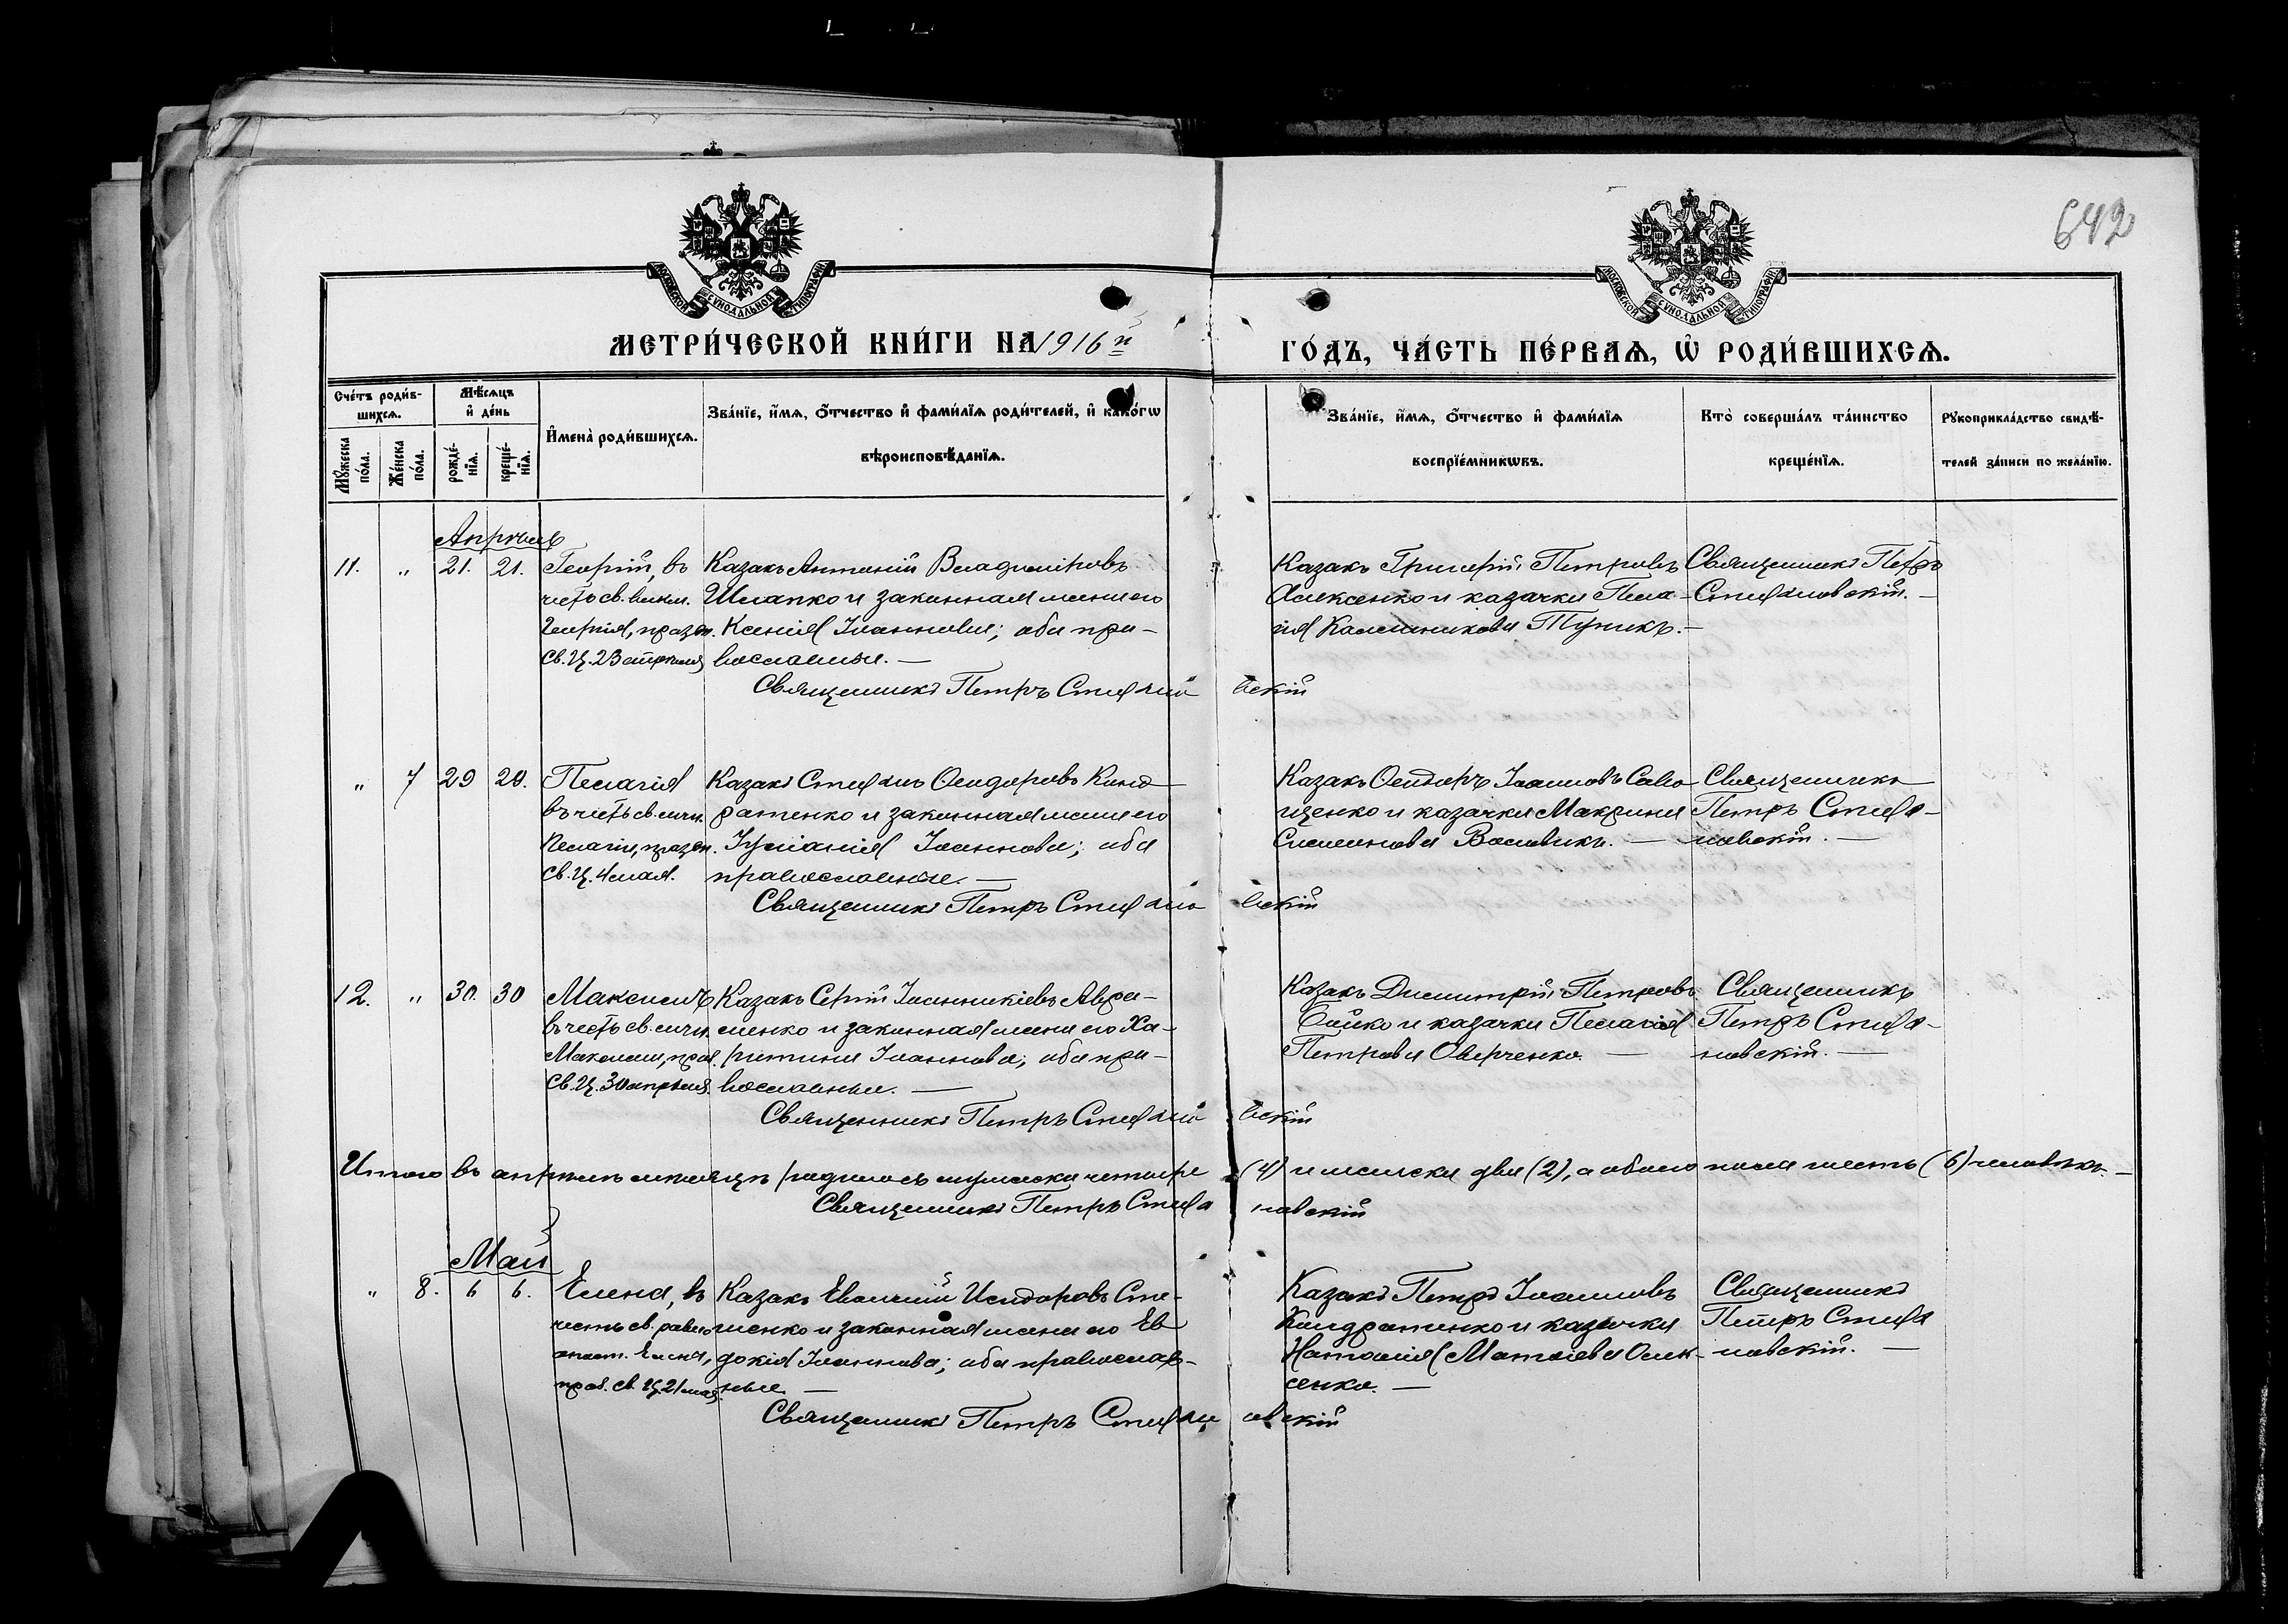 642
МОСКОВСКОЙ СѴНОДАЛЬНОЙ ТИПОГРАФІИ
МОСКОВСКОЙ СѴНОДАЛЬНОЙ ТИПОГРАФІИ
МЕТРИ́ЧЕСКОЙ КНИ́ГИ НА 1916 й
ГО́ДЪ, ЧА́СТЬ ПЕ́РВАѦ, Ѡ҆ РОДИ́ВШИХСѦ.
Сче́тъ роди́в-
шихсѧ.
Мѣ́сѧцъ
и҆ де́нь
Мꙋ́жеска
по́ла.
Же́нска
по́ла.
рожде́-
нїѧ.
креще́-
нїѧ.
И҆мена̀ роди́вшихсѧ.
Зва́нїе, и҆́мѧ, ѻ҆́тчество и҆ фами́лїѧ роди́телей, и҆ како́гѡ
вѣроисповѣ́данїѧ.
Зва́нїе, и҆́мѧ, ѻ҆́тчество и҆ фами́лїѧ
воспрїе́мникѡвъ.
Кто̀ соверша́лъ та́инство
креще́нїѧ.
Рꙋкоприкла́дство свидѣ́-
телей за́писи по жела́нїю.
Апрѣль
11. „ 21. 21.
Георгій, въ
честь св. велик.
Георгія, празд.
св. Ц. 23 апрѣля
Казакъ Антоній Владиміровъ
Шлапко и законная жена его
Ксенія Іоаннова; оба пра-
вославные. —
Священникъ Петръ Стефановскій
Казакъ Григорій Петровъ
Алексенко и казачка Пела-
гія Калинникова Тупикъ. —
Священникъ Петръ
Стефановскій. —
„ 7 29 29.
Пелагія
въ честь св. муч.
Пелагіи, празд.
св. Ц. 4 мая.
Казакъ Стефанъ Ѳеодоровъ Конд-
ратенко и законная жена его
Іуліанія Іоаннова; оба
православные. —
Священникъ Петръ Стефановскій
Казакъ Ѳеодоръ Іоанновъ Сав
щенко и казачка Макрина
Симеонова —
Священникъ
Петръ Стефа-
новскій. —
12. „ 30. 30
Максимъ
въ честь св. муч.
Максима, праз.
св. Ц. 30 апрѣля.
Казакъ Сергій Іоанникіевъ Авра-
менко и законная жена его Ха-
ритина Іоаннова; оба пра-
вославные. —
Священникъ Петръ Стефановскій
Казакъ Димитрій Петровъ
Бойко и казачка Пелагія
Петрова Оверченко. —
Священникъ
Петръ Стефа-
новскій. —
Итого въ апрѣлѣ мѣсяцѣ родилось мужеска четыре (4) и женска два (2), а обоего пола шесть (6) человѣкъ. —
Священникъ Петръ Стефановскій
Май
„ 8. 6 6.
Елена, въ
честь св. равно
апост. Елены,
праз. св. Ц. 21 мая.
Казакъ Евѳимій Исидоровъ Сте-
ценко и законная жена его Ев
докія Іоаннова; оба православ-
ные. —
Священникъ Петръ Стефановскій
Казакъ Петръ Іоанновъ
Кондратенко и казачка
Наталія Матѳіева Олек-
сенко. —
Священникъ
Петръ Стефа
новскій. —